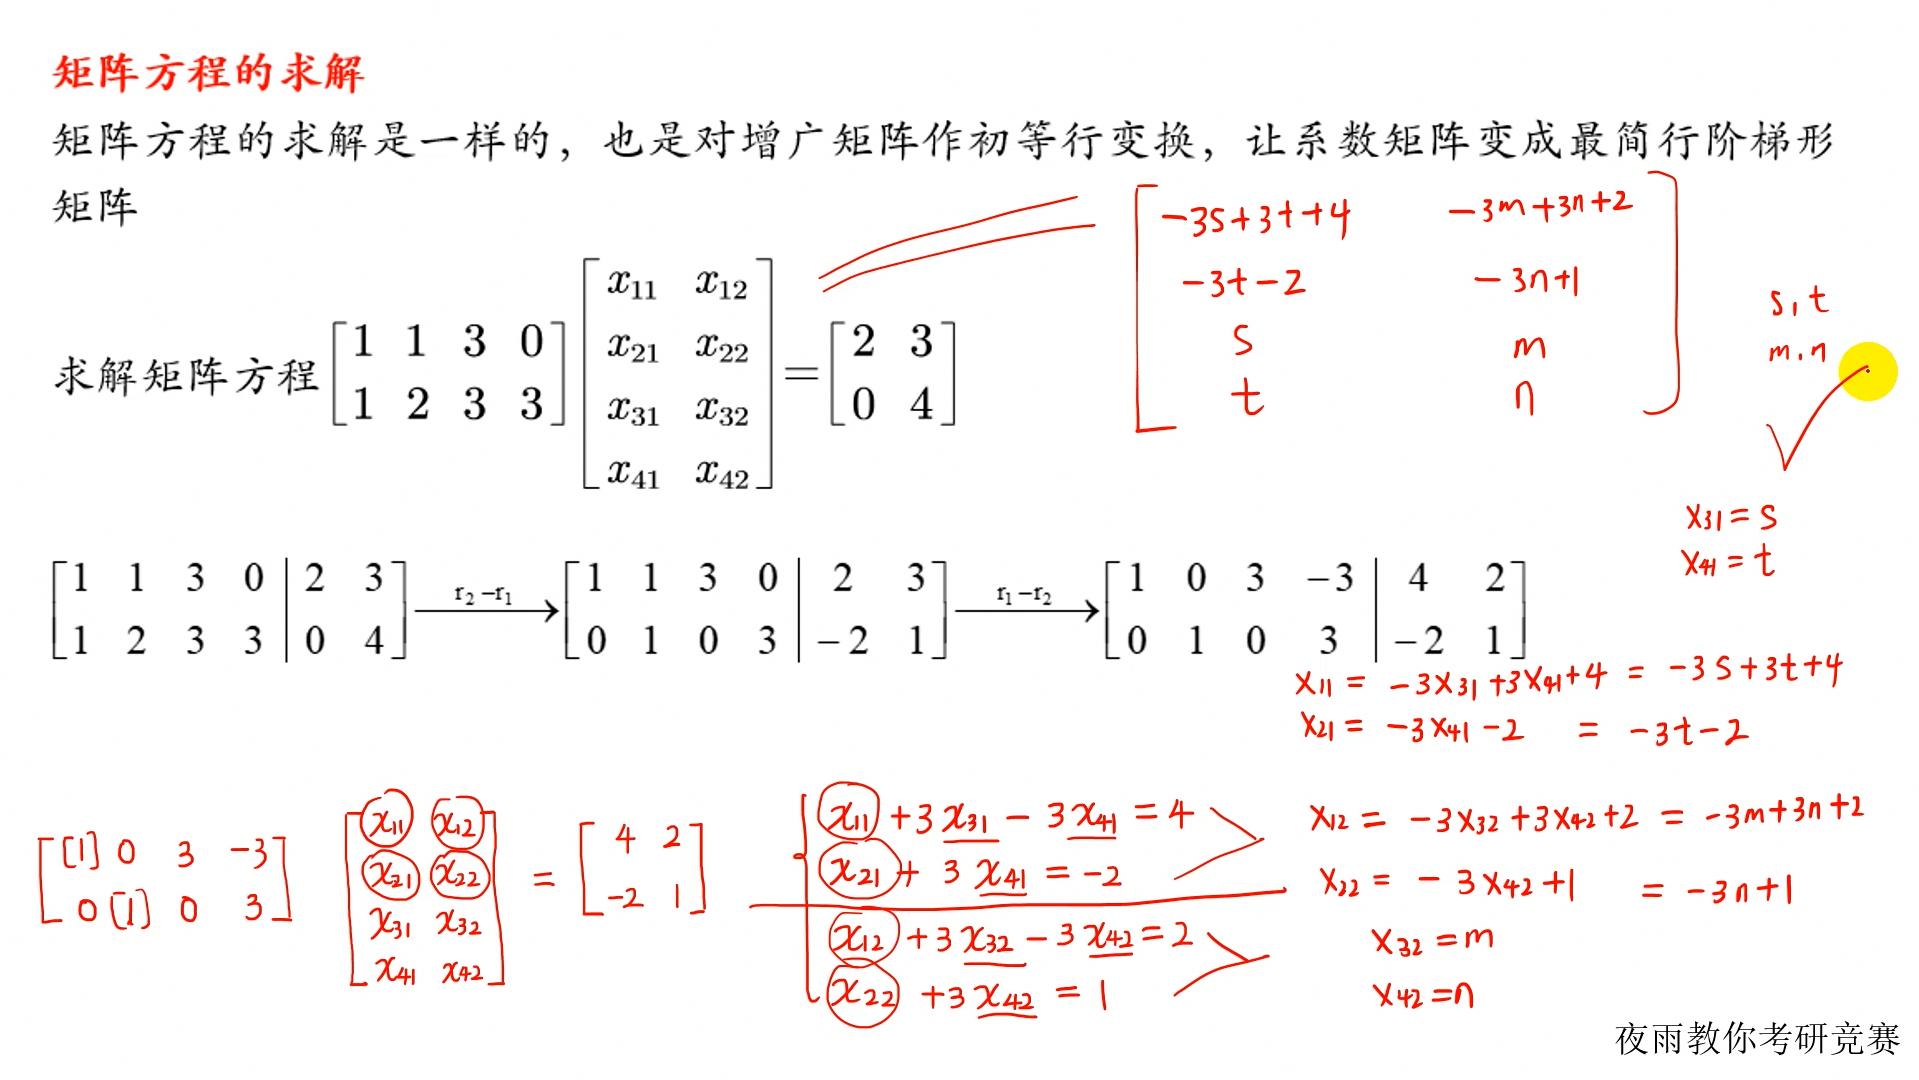 矩阵方程的求解
矩阵方程的求解是一样的，也是对增广矩阵作初等行变换，让系数矩阵变成最简行阶梯形
矩阵
-3s+3t+4 -3m+3n+2
-3t-2 -3n+1
s m
t n
s, t
m, n
求解矩阵方程
1 1 3 0
1 2 3 3
x11 x12
x21 x22
x31 x32
x41 x42
=
2 3
0 4
x31 = s
x41 = t
1 1 3 0 | 2 3
1 2 3 3 | 0 4
r2-r1
1 1 3 0 | 2 3
0 1 0 3 | -2 1
r1-r2
1 0 3 -3 | 4 2
0 1 0 3 | -2 1
x11 = -3x31+3x41+4 = -3s+3t+4
x21 = -3x41-2 = -3t-2
[1] 0 3 -3
0 [1] 0 3
x11 x12
x21 x22
x31 x32
x41 x42
=
4 2
-2 1
x11+3x31-3x41=4
x21+3x41=-2
x12+3x32-3x42=2
x22+3x42=1
x12 = -3x32+3x42+2 = -3m+3n+2
x22 = -3x42+1 = -3n+1
x32=m
x42=n
夜雨教你考研竞赛